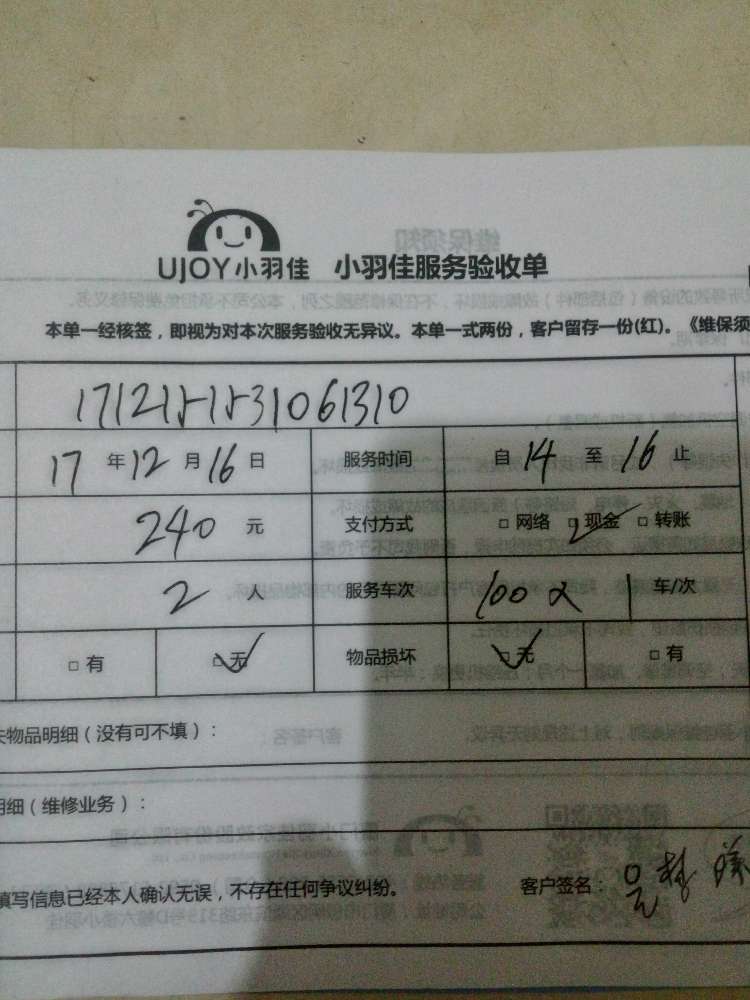 UJOY小羽佳 小羽佳服务验收单
本单一经核签，即视为对本次服务验收无异议。本单一式两份，客户留存一份(红)。《维保须
17年12月16日 服务时间 自14至16止
240元 支付方式 □网络 □现金 □转账
2人 服务车次 1车/次
□有 □无 物品损坏 □无 □有
物品明细（没有可不填）：
明细（维修业务）：
填写信息已经本人确认无误，不存在任何争议纠纷。 客户签名：